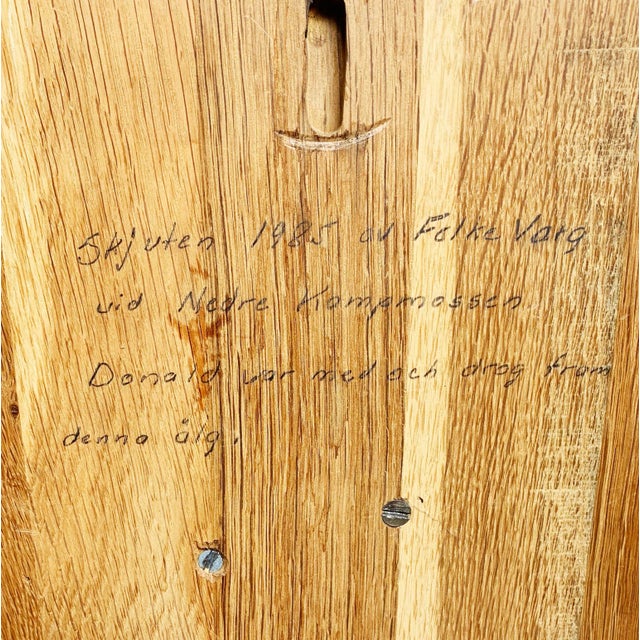 Skjuten 1985 av Folke Varg
vid Nedre Kampmossen
Donald var med och drog fram
denna älg.